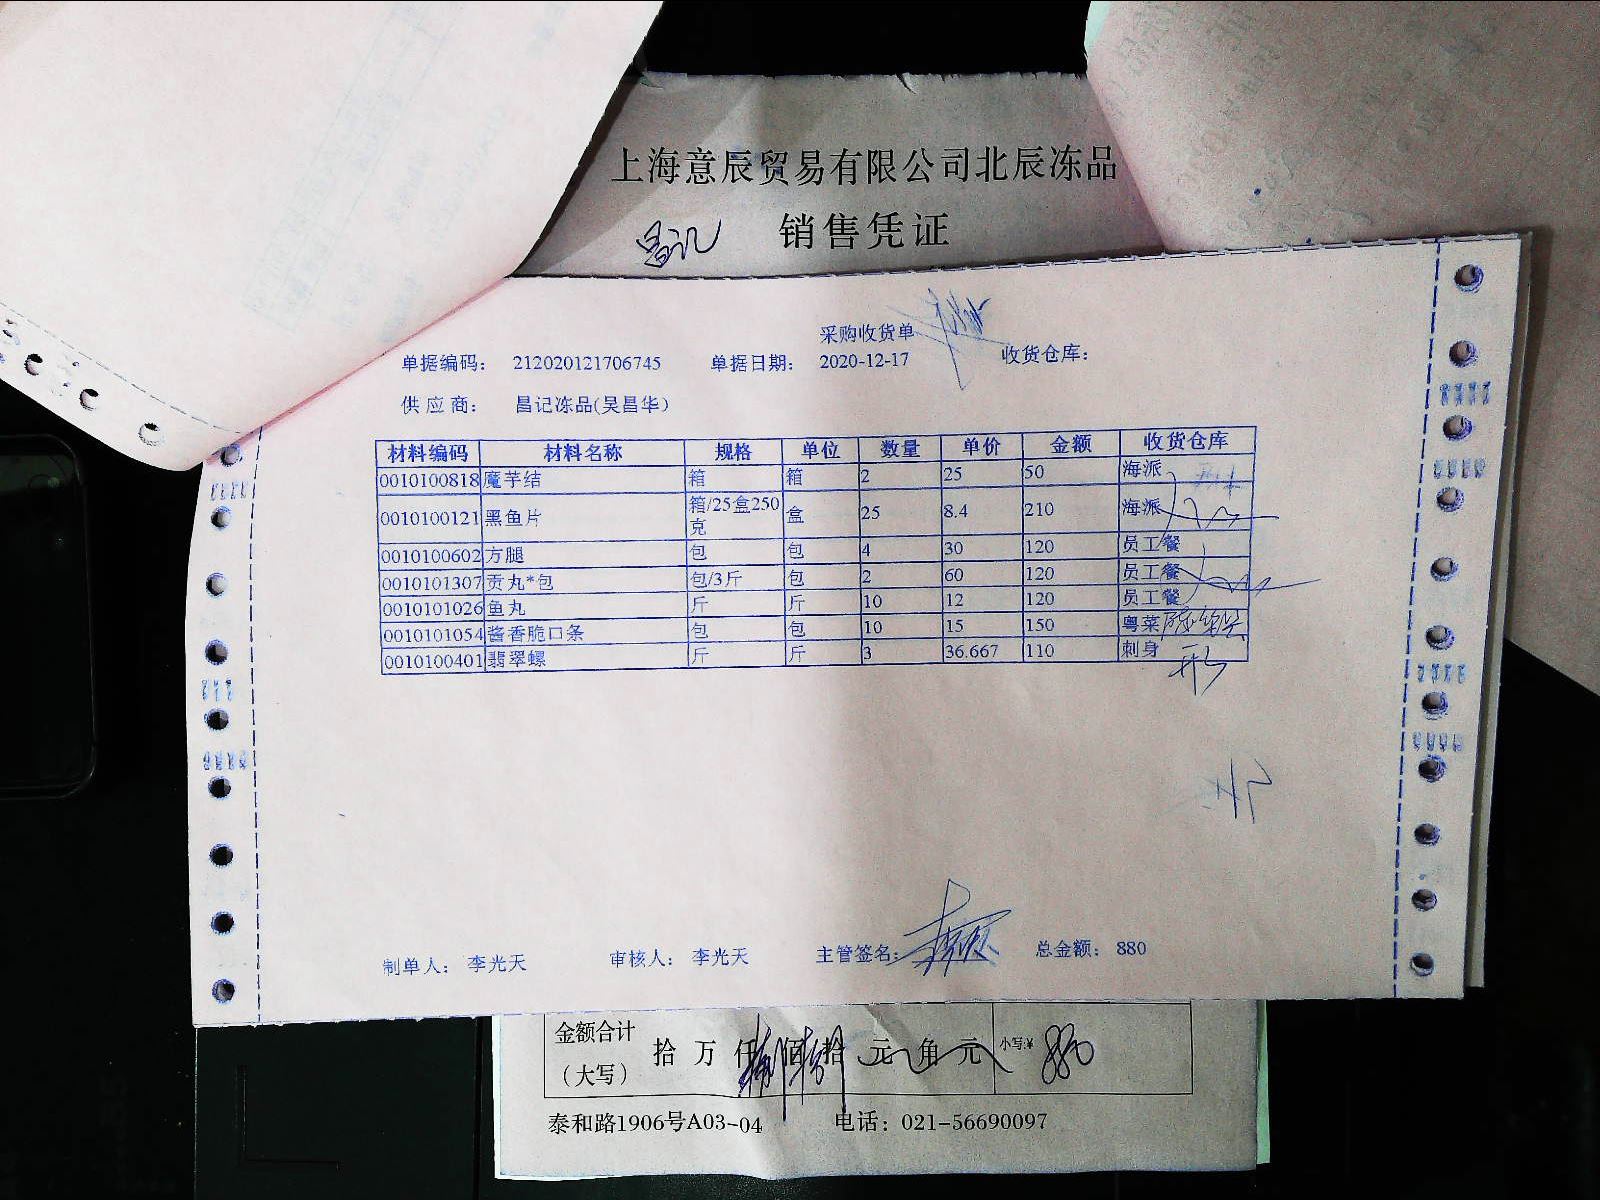 上海意辰贸易有限公司北辰冻品
销售凭证
昌记
采购收货单
单据编码： 212020121706745 单据日期： 2020-12-17 收货仓库：
供应商： 昌记冻品(吴昌华)
材料编码 材料名称 规格 单位 数量 单价 金额 收货仓库
0010100818 魔芋结 箱 箱 2 25 50 海派
0010100121 黑鱼片 箱/25盒250克 盒 25 8.4 210 海派
0010100602 方腿 包 包 4 30 120 员工餐
0010101307 贡丸*包 包/3斤 包 2 60 120 员工餐
0010101026 鱼丸 斤 斤 10 12 120 员工餐
0010101054 酱香脆口条 包 包 10 15 150 粤菜
0010100401 翡翠螺 斤 斤 3 36.667 110 刺身
制单人： 李光天 审核人： 李光天 主管签名： 总金额： 880
金额合计
（大写） 拾 万 仟 捌 佰 捌 拾 元 角 元 小写:¥ 880
泰和路1906号A03-04 电话：021-56690097